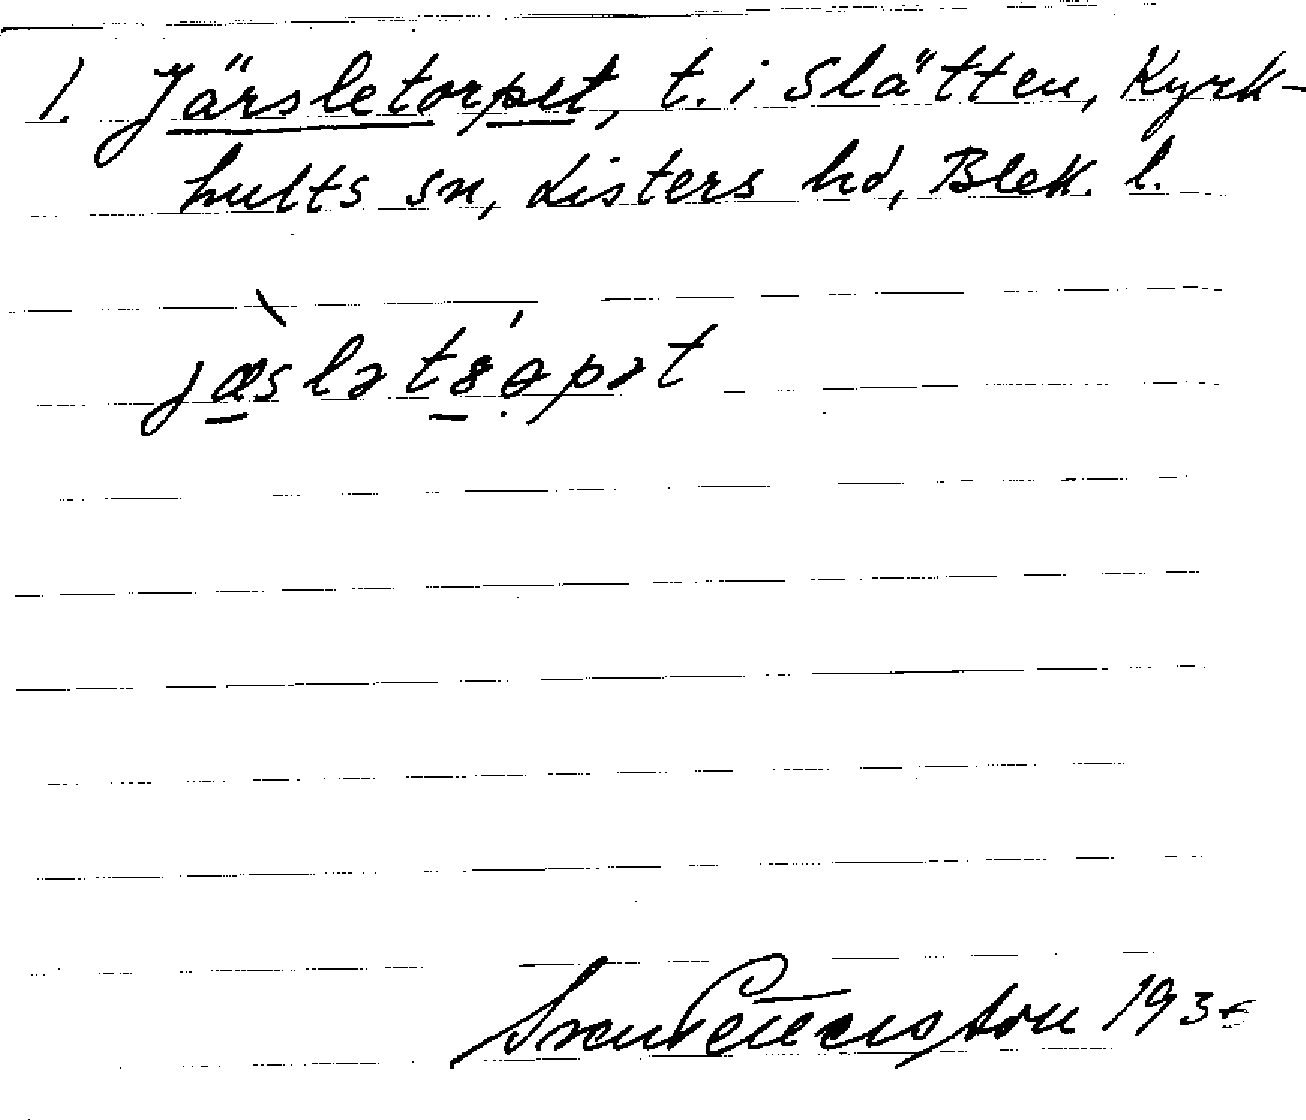 1. Järsletorpet, t. i Slätten, Kyrk-
hults sn, Listers hd, Blek. l.
jæslətəpət
Sven Pettersson